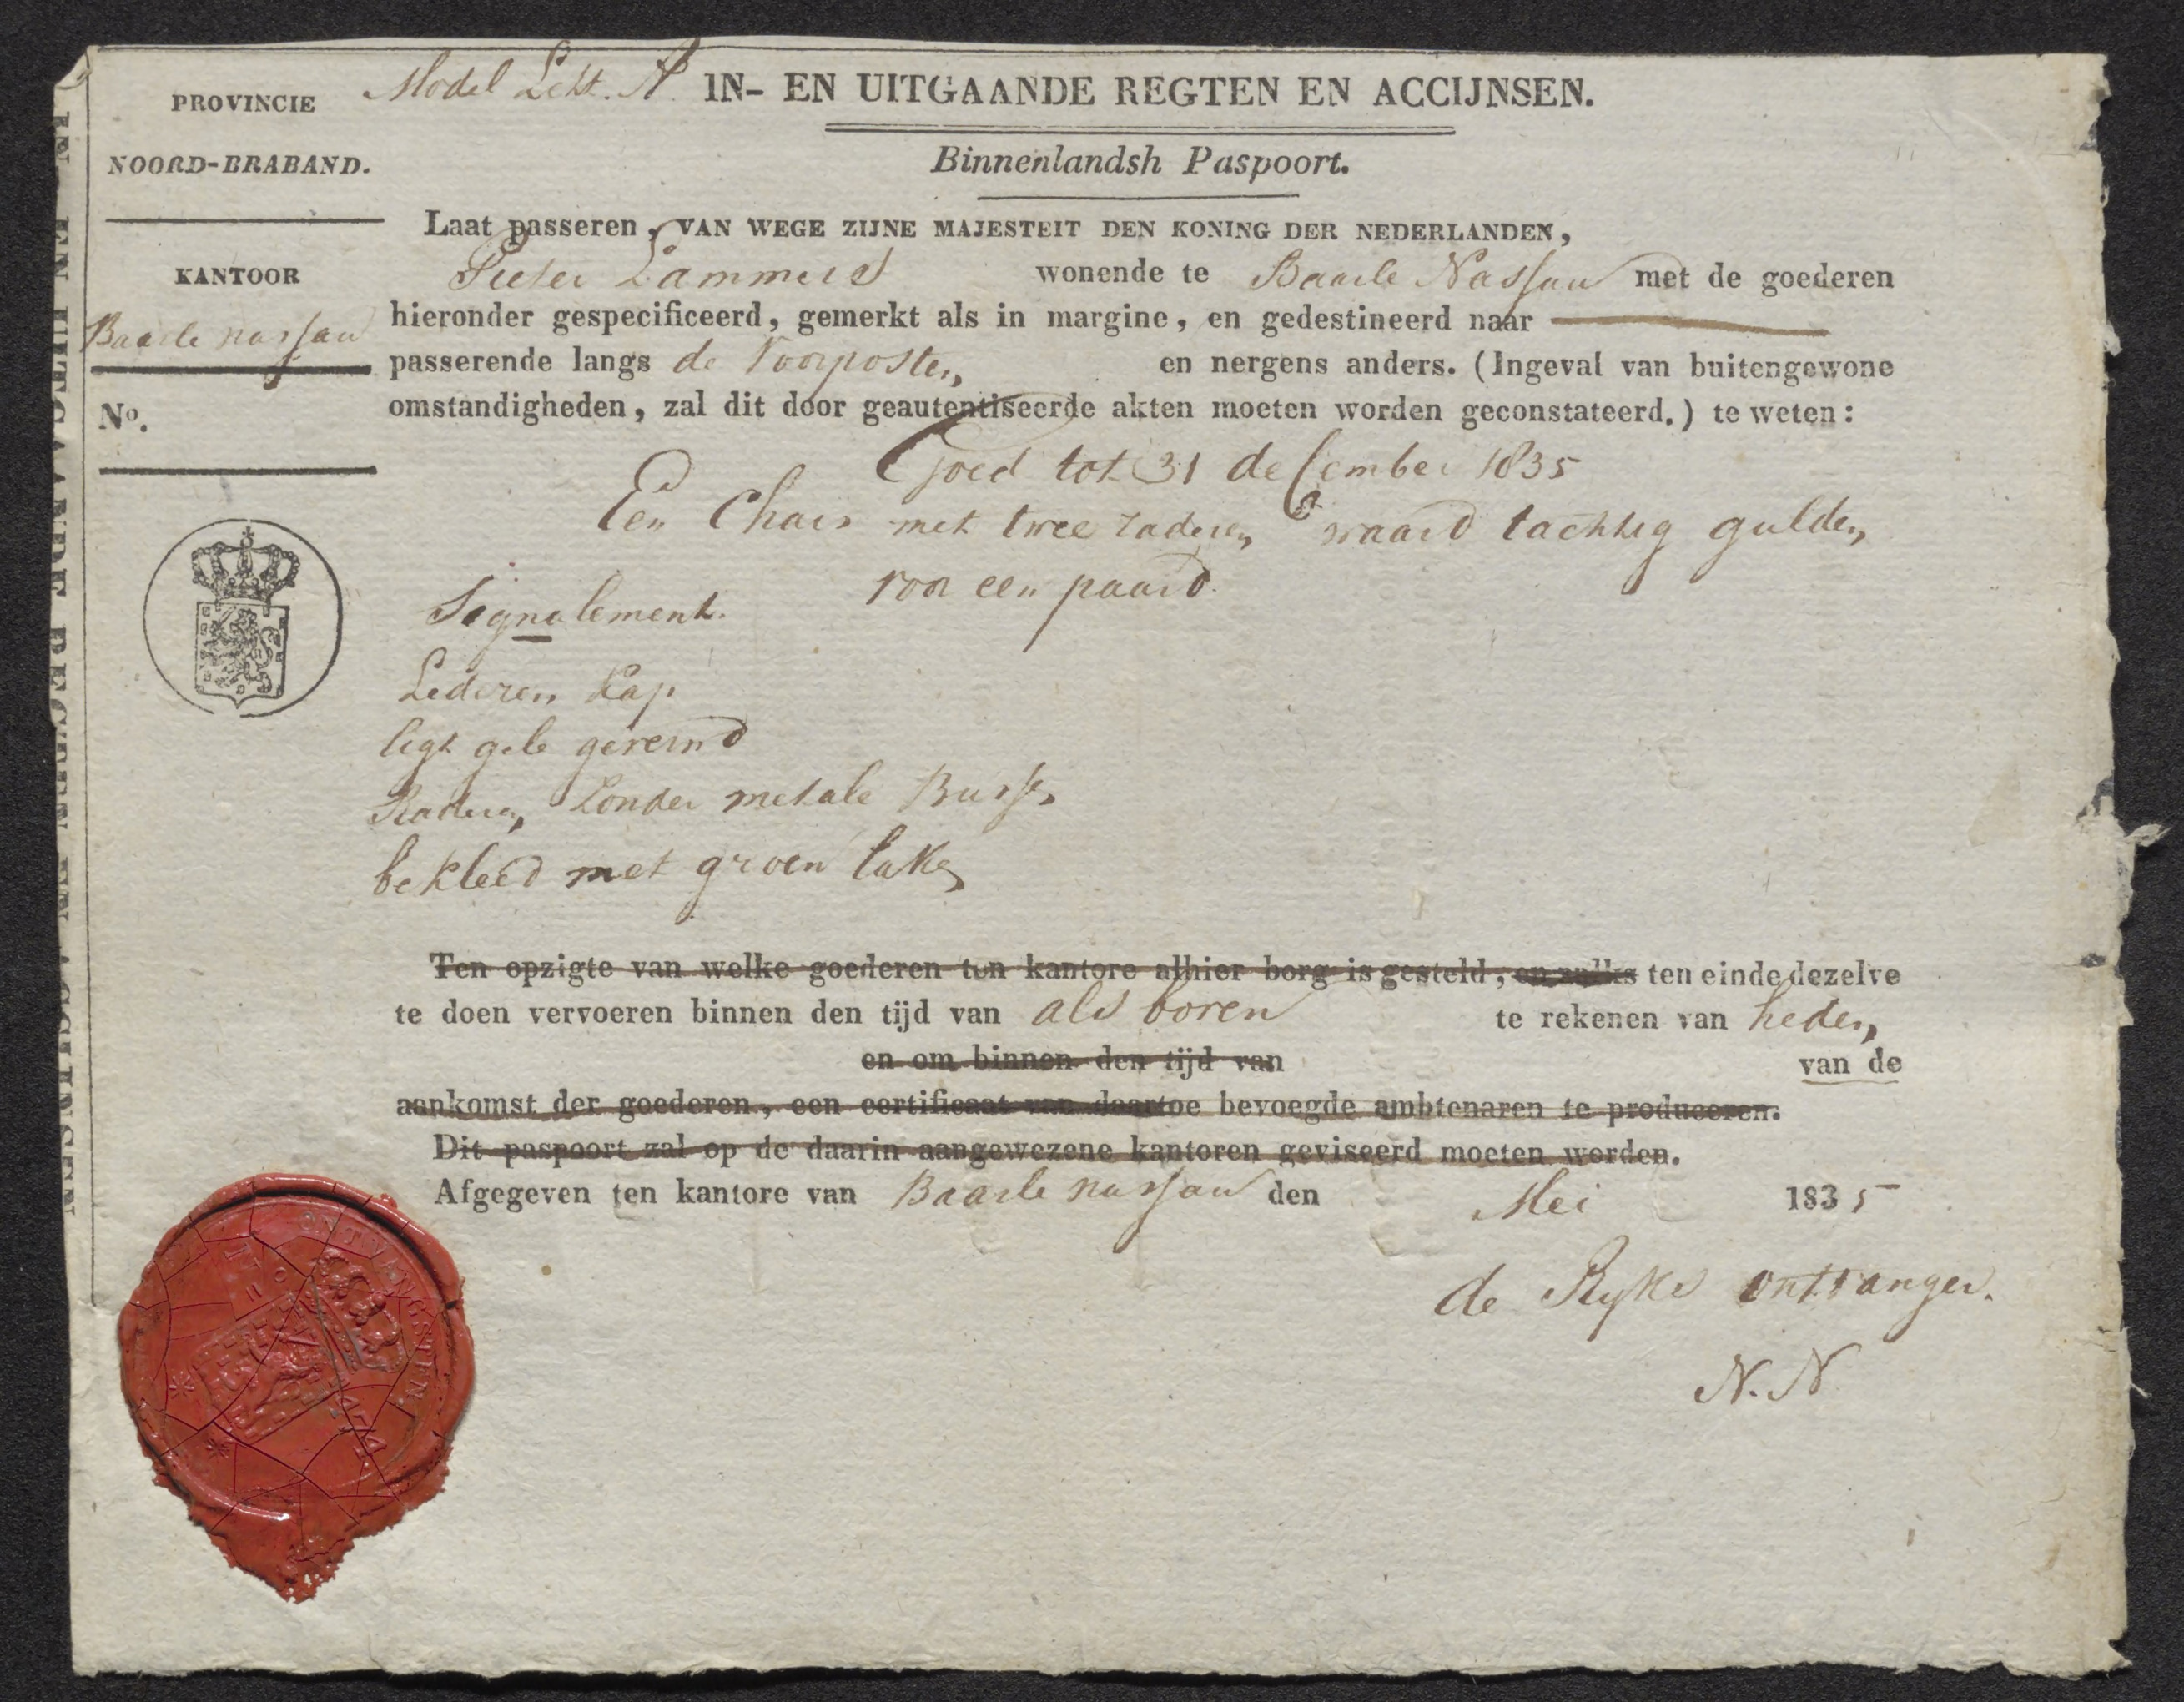 Model Lett. A.
IN- EN UITGAANDE REGTEN EN ACCIJNSEN.
Binnenlandsh Paspoort.
PROVINCIE
NOORD-BRABAND.
KANTOOR
Baarle nassau
No.
Laat passeren, VAN WEGE ZIJNE MAJESTEIT DEN KONING DER NEDERLANDEN,
Pieter Lammers wonende te Baarle Nassau met de goederen
hieronder gespecificeerd, gemerkt als in margine, en gedestineerd naar
passerende langs de voorposten en nergens anders. (Ingeval van buitengewone
omstandigheden, zal dit door geautentiseerde akten moeten worden geconstateerd.) te weten:
Goed tot 31 december 1835
Een Chais met twee raderen waard tachtig gulden
voor een paard.
Signalement.
Lederen Kap
ligt gele geverwd
Raderen zonder metale Bussen
bekleed met groen laken
Ten opzigte van welke goederen ten kantore alhier borg is gesteld, en zulks ten einde dezelve
te doen vervoeren binnen den tijd van als boven te rekenen van heden
en om binnen den tijd van van de
aankomst der goederen, een certificaat van daartoe bevoegde ambtenaren te produceren.
Dit paspoort zal op de daarin aangewezene kantoren geviseerd moeten worden.
Afgegeven ten kantore van Baarle nassau den Mei 1835
de Ryks ontvanger.
N. N
IN- EN UITGAANDE REGTEN EN ACCIJNSEN
ONTVANGSTEN